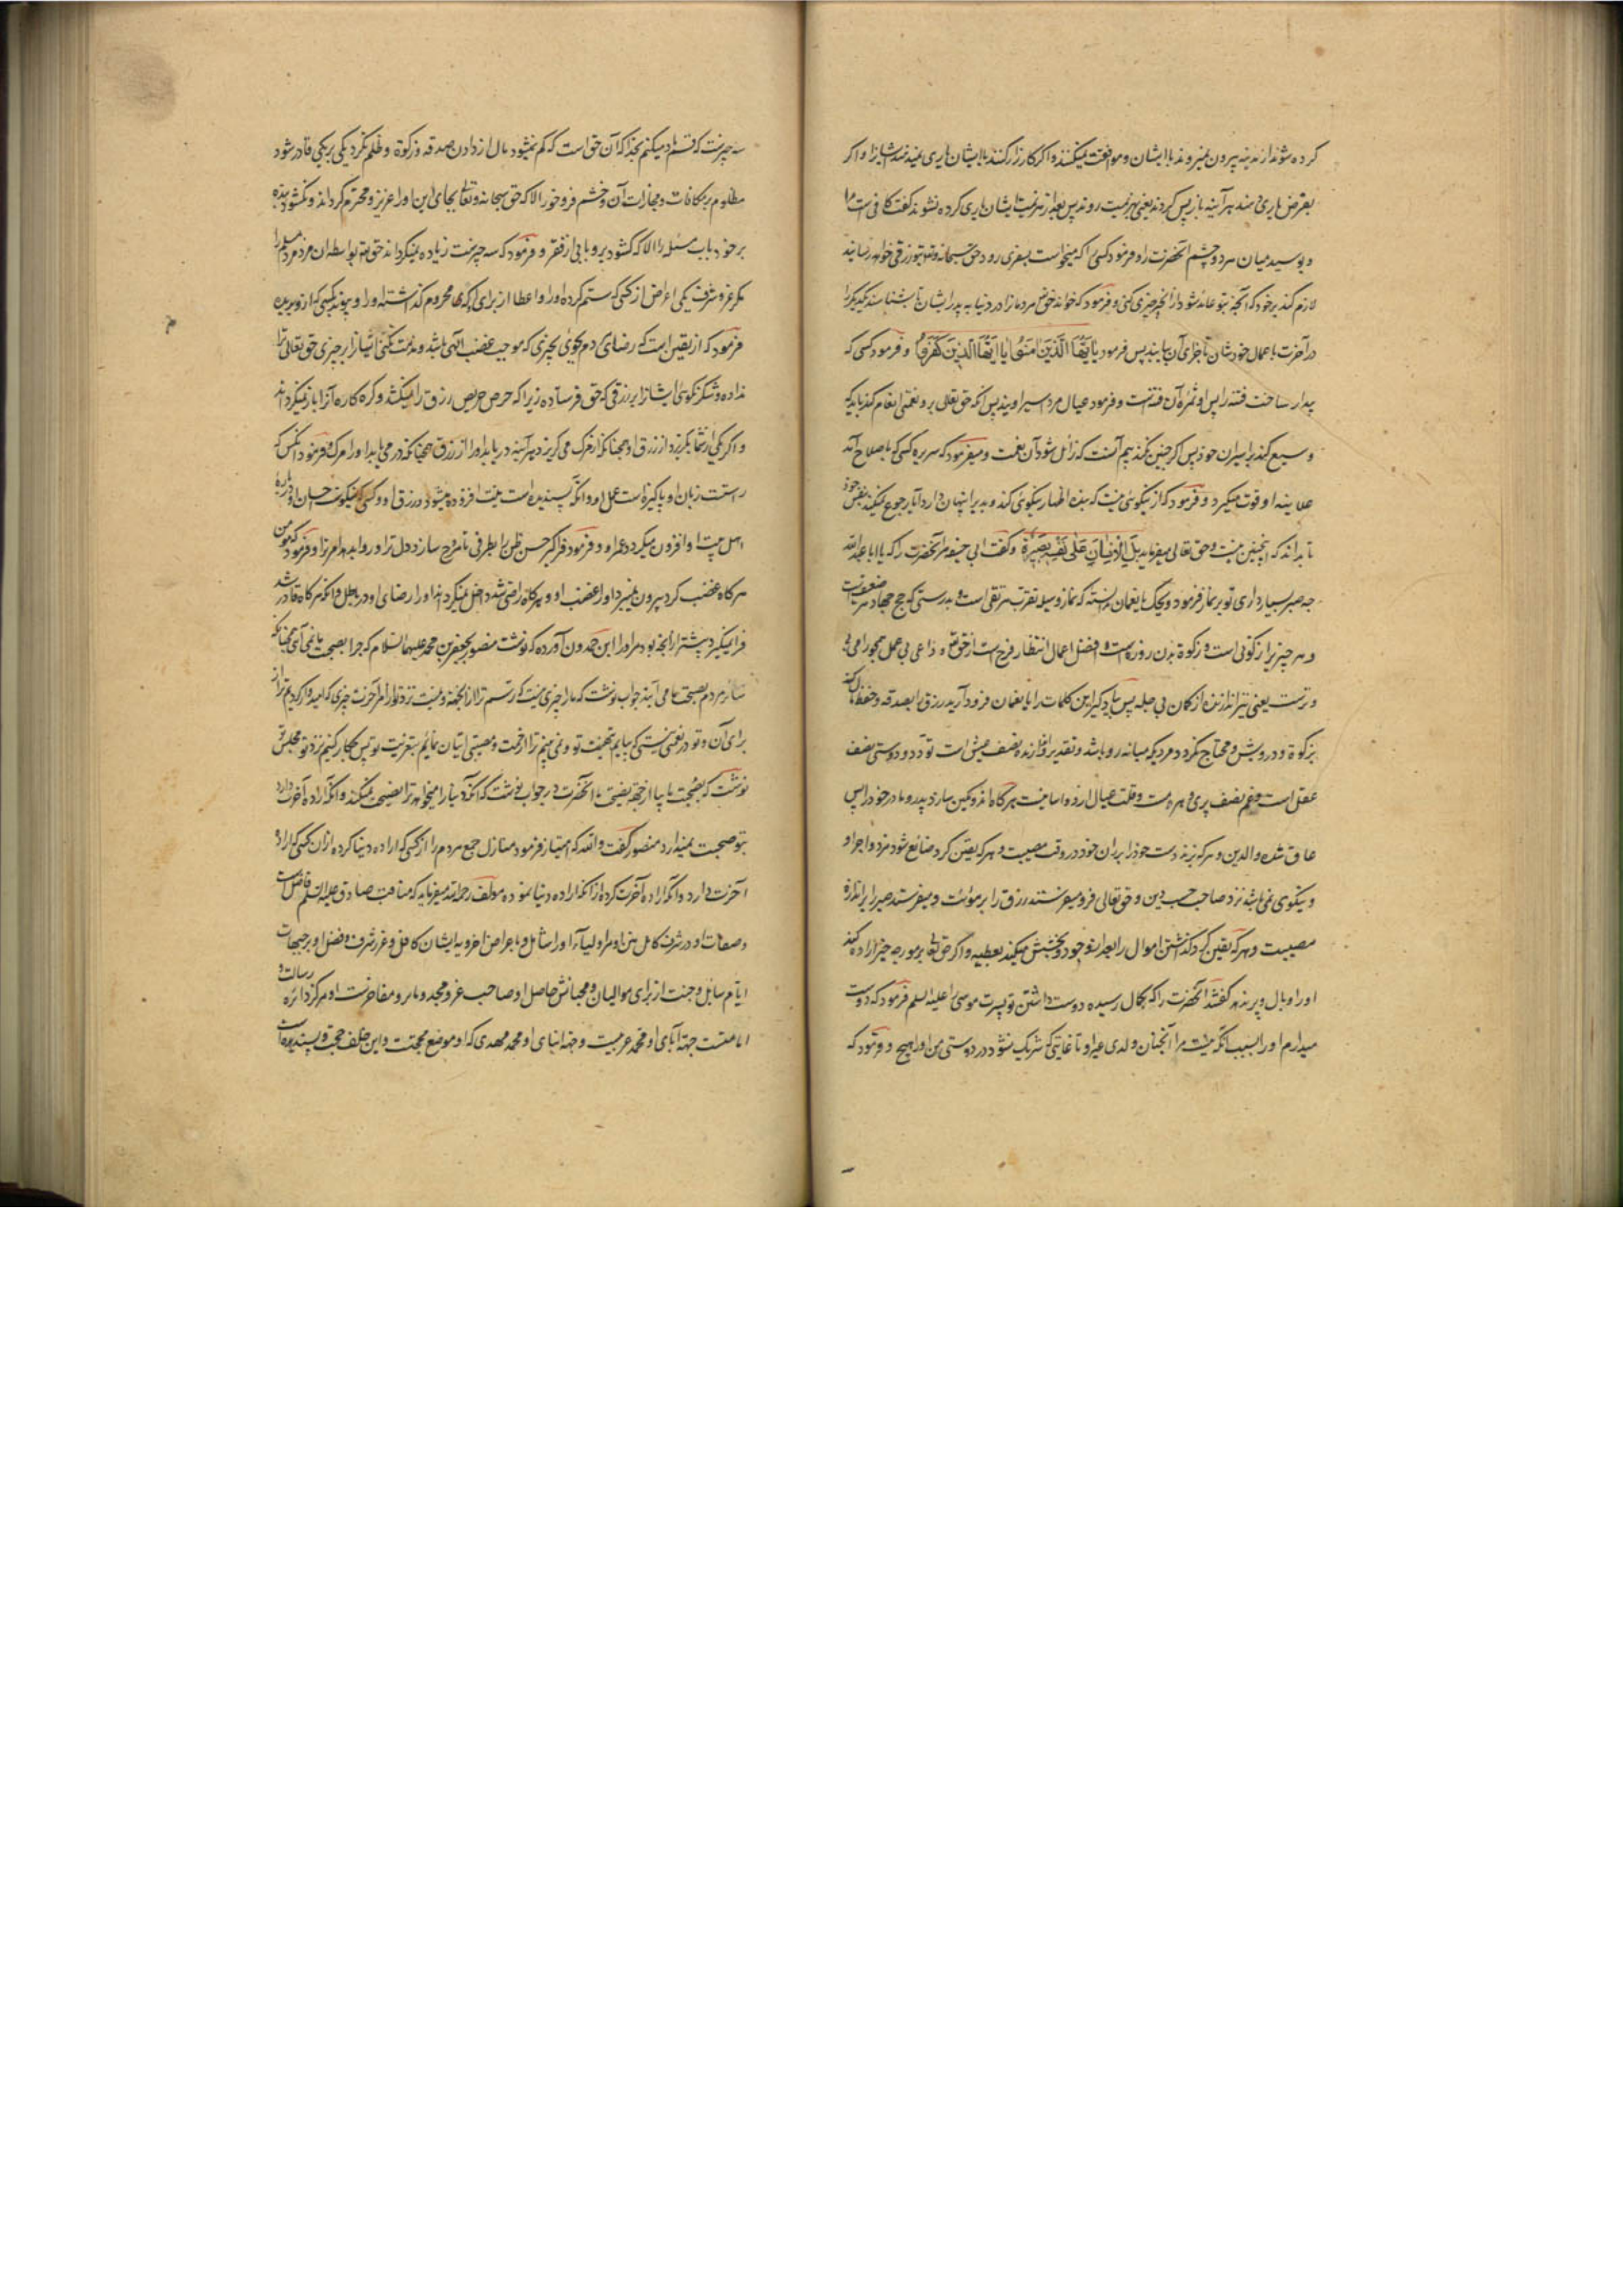 کرده شوند از مدینه بیرون نمیروند با ایشان و موافقت نمیکنند و اگر کارزار کنند با ایشان یاری نمیدهند ایشانرا و اگر
بفرض یاری دهند هر آینه باز پس گردند یعنی بهزیمت روند پس بعد از هزیمت ایشان یاری کرده نشوند گفت کافی است مرا
و بوسید میان هر دو چشم آنحضرت را و فرمود کسی را که میخواست بسفری رود حق سبحانه و تعالی بتو رزقی خواهد رسانید
لازم کند بر خود که آنچه بتو عائد شود از آن چیزی کنی و فرمود که خواند حق مردمان را در دنیا به پدر ایشان تا بشناسند یکدیگر را
در آخرت با عمال خودشان تا جزای آن یابند پس فرمود یا أیها الذین امنوا یا أیها الذین کفروا و فرمود کسی که
بیدار ساخت فتنه را پس او ثمرهٔ آن فتنه است و فرمود عیال مرد اسیر اویند پس آنکه حق تعالی برو نعمتی انعام کند باید که
وسیع کند بر اسیران خود پس اگر چنین نکند بیم آنست که زائل شود آن نعمت و میفرمود که سریره کسی که باصلاح آمد
علانیه او قوت میگیرد و فرمود که از نیکوئی نیست که بنده اظهار نیکوئی کند و بدی را پنهان دارد آیا رجوع نمیکند بنفس خود
تا بداند که اینچنین نیست و حق تعالی میفرماید بل الانسان علی نفسه بصیرة و گفت ابی حنیفه مر آنحضرت را که یا ابا عبدالله
چه صبر بسیار داری تو بر نماز فرمود ویحک یا نعمان ندانسته که نماز وسیله تقرب هر تقی است و بدرستی که حج جهاد هر ضعیفست
و هر چیز را زکوتی است و زکوة بدن روزه است و افضل اعمال انتظار فرج است از حق تع و داعی بی عمل همچو رامی بی
وترست یعنی تیر اندازنده از کمان بی چله پس یاد گیر این کلمات را یا نعمان فرود آرید رزق را بصدقه و حفظ مال کنید
بزکوة و درویش و محتاج نگردد مردیکه میانه رو باشد و تقدیر و اندازه نصف عیش است تودد و دوستی نصف
عقل است و غم نصف پیری و هرمست و قلت عیال از دو اسانیست هر گاه اندوهگین سازد پدر و مادر خود را پس
عاق شده والدین و هر که بزند دست خود را بر ران خود در وقت مصیبت و هر که یقین کرد ضائع شود مزد و اجر او
و نیکوی نمی باشد نزد صاحب حسب و دین و حق تعالی فرو میفرستد رزق را بر مؤنت و میفرستد صبر را بر اندازه
مصیبت و هر که یقین کرد گذاشتن اموال را بعد از جود و بخشش میکند بعطیه و اگر حق تعالی بر مورچه خیر اراده کند
او را و بال و پر ندهد گفتند آنحضرت را که بکمال رسیده دوست داشتن تو پسرت موسی را علیه السلم فرمود که دوست
میدارم او را بسبب آنکه نیست مرا آنچنان ولدی غیر او تا غایتی که شریک نشود در دوستی من او را هیچ و فرمود که
سه چیزست که قسم یاد میکنم بخدا که آن حق است که کم نمیشود مال از دادن صدقه و زکوة و ظلم نکرد یکی بر یکی قادر شود
مظلوم بر مکافات و مجازات آن و خشم فرو خورد الا که حق سبحانه و تعالی بجای این او را عزیز و محترم گرداند و نگشود بنده
بر خود باب مسئله را الا که گشود برو بابی از فقر و فرمود که سه چیزست زیاده نمیگرداند حق تع بواسطه آن مرد مسلم را
مگر عز و شرف یکی اعراض از کسی که ستم کرده او را و اعطا از برای آنکه محروم گذاشته او را و پیوند بکسی که از وی بریده
فرمود که از یقین است که رضای مردم نجوئی بچیزی که موجب غضب الهی باشد و مذمت نکنی ایشانرا بر چیزی که حق تعالی ترا
نداده و شکر نگوئی ایشانرا بر رزقی که حق فرستاده زیرا که حرص حریص رزق را نمیکشد و کره کاره آنرا باز نمیگرداند
و اگر یکی از شما بگریزد از رزق او همچنانکه از مرگ می گریزد هر آینه دریابد او را از رزق همچنانکه در می یابد او را مرگ و فرمود آنکس که
راستست زبان او پاکیزه است عمل او و آنکه پسندیده است نیت افزوده میشود در رزق او و کسی که نیکوست احسان او درباره
اهل بیت او افزون میگردد عمر او و فرمود فراگیر حسن ظن را بطرفی تا مروح سازد دل ترا و روا بدهد امر ترا و فرمود که مؤمن
هرگاه غضب کرد بیرون نمیبرد او را غضب او و هرگاه راضی شد داخل نمیگرداند او را رضای او در باطل و آنکه هرگاه قادر شد
فرا نمیگیرد بیشتر از آنچه بود مر او را ابن حمدون آورده که نوشت منصور بجعفر بن محمد علیهما السلام که چرا بصحبت ما نمی آئی همچنانکه
سائر مردم بصحبت ما می آیند جواب نوشت که ما را چیزی نیست که بترسیم ترا از آنجهة و نیست نزد تو از امر آخرت چیزی که امیدوار گردیم ترا از
برای آن و تو در نعمتی نیستی که بیایم بتهنیت تو و نمی بینم ترا از نقمت و مصیبتی اتیان نمائیم بتعزیت تو پس چکار کنیم نزد تو مجلس تو
نوشت که بصحبت ما بیا از جهة نصیحت ما آنحضرت در جواب نوشت که آنکه دنیا را میخواهد ترا نصیحت نمیکند و آنکه اراده آخرت دارد
بتو صحبت نمیدارد منصور گفت والله که امتیاز فرمود منازل جمیع مردم را از کسی که اراده دنیا کرده از آن کسی که اراده
آخرت دارد و آنکه اراده آخرت کرده از آنکه اراده دنیا نموده مؤلف رحمه الله میفرماید که مناقب صادق علیه السلم فاضلست
وصفات او در شرف کامل
ایام سایل و جنت از برای موالیان و محبانش حاصل او صاحب عز و مجد و مآثر و مفاخرت او مرکز دائره رسالت و
امامتست جهة آبای او محمد عربیست و جهة ابنای او محمد مهدی که او موضع محجتست و این خلف حجت و پسندیده است